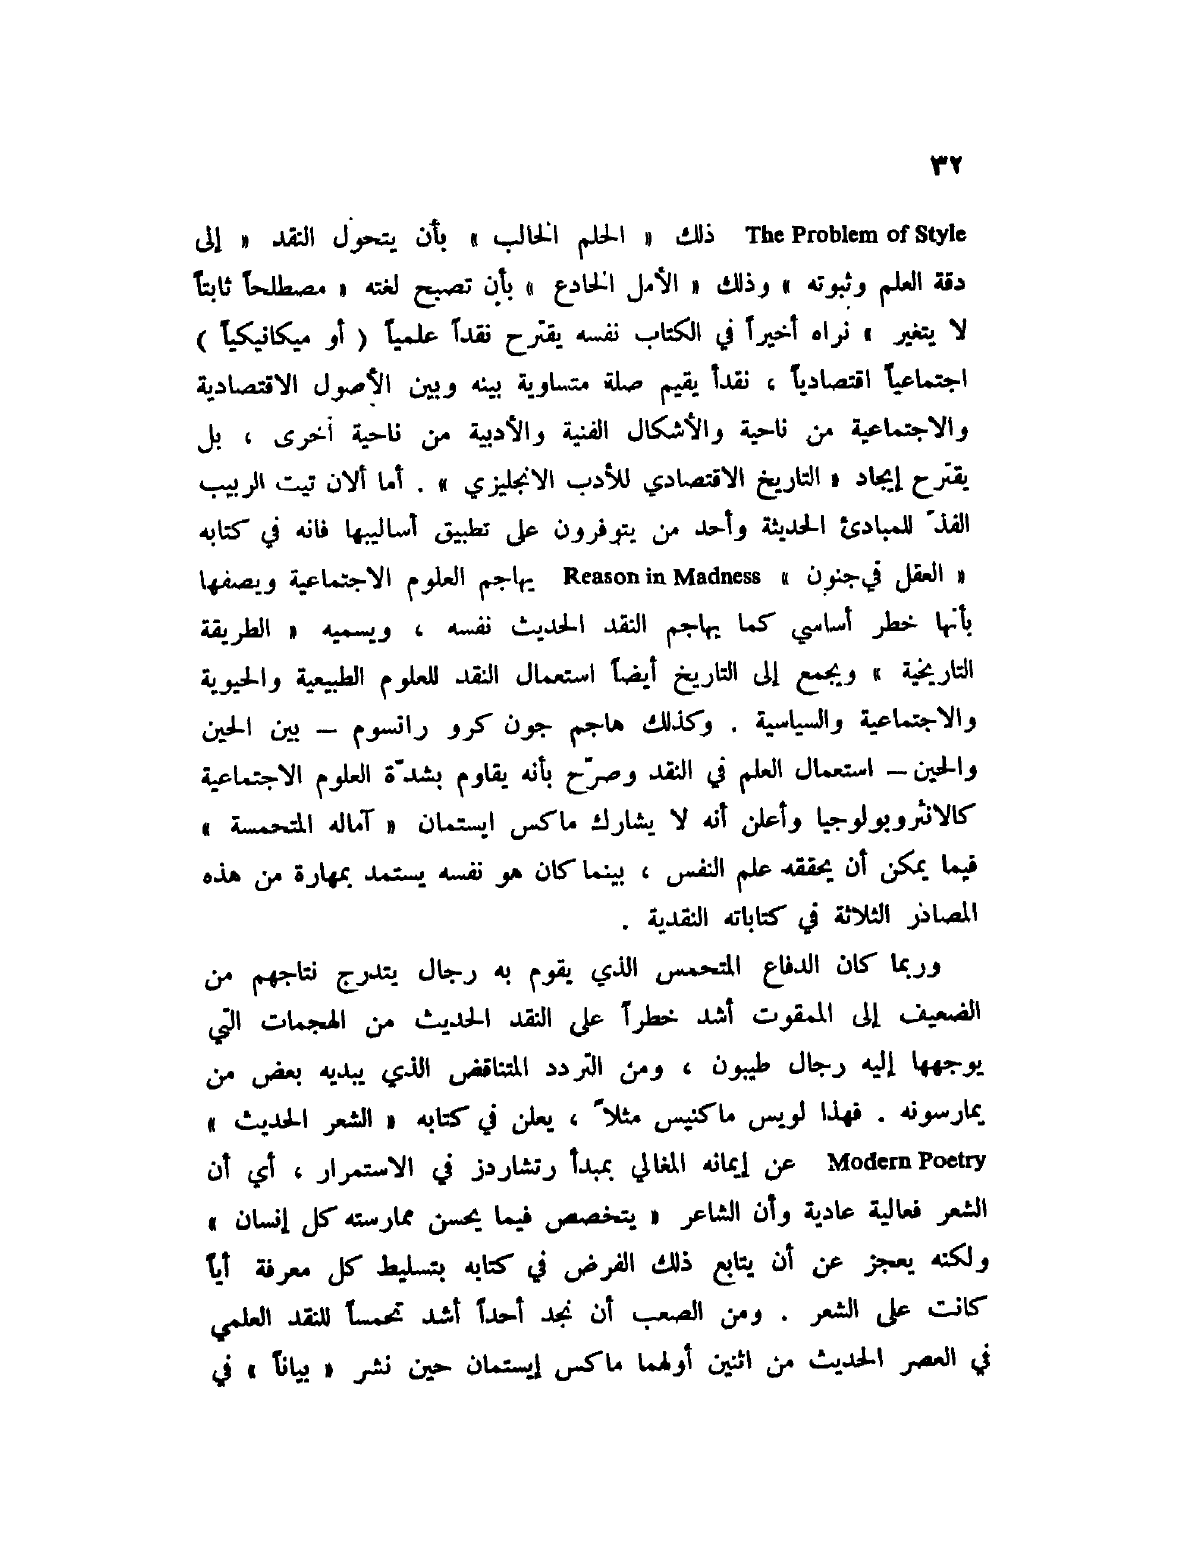 ٣٢
The Problem of Style ذلك « الحلم الخالب » بأن يتحول النقد « إلى
دقة العلم وثبوته » وذلك « الأمل الخادع » بأن تصبح لغته « مصطلحاً ثابتاً
لا يتغير » نراه أخيراً في الكتاب نفسه يقترح نقداً علمياً ( أو ميكانيكياً )
اجتماعياً اقتصادياً ، نقداً يقيم صلة متساوية بينه وبين الأصول الاقتصادية
والاجتماعية من ناحية والأشكال الفنية والأدبية من ناحية أخرى ، بل
يقترح إيجاد « التاريخ الاقتصادي للأدب الانجليزي » . أما ألان تيت الربيب
الفذّ للمبادئ الحديثة وأحد من يتوفرون على تطبيق أساليبها فانه في كتابه
« العقل في جنون » Reason in Madness يهاجم العلوم الاجتماعية ويصفها
بأنها خطر أساسي كما يهاجم النقد الحديث نفسه ، ويسميه « الطريقة
التاريخية » ويجمع إلى التاريخ أيضاً استعمال النقد للعلوم الطبيعية والحيوية
والاجتماعية والسياسية . وكذلك هاجم جون كرو رانسوم – بين الحين
والحين – استعمال العلم في النقد وصرّح بأنه يقاوم بشدّة العلوم الاجتماعية
كالانثروبولوجيا وأعلن أنه لا يشارك ماكس ايستمان « آماله المتحمسة »
فيما يمكن أن يحققه علم النفس ، بينما كان هو نفسه يستمد بمهارة من هذه
المصادر الثلاثة في كتاباته النقدية .
وربما كان الدفاع المتحمس الذي يقوم به رجال يتدرج نتاجهم من
الضعيف إلى الممقوت أشد خطراً على النقد الحديث من الهجمات التي
يوجهها إليه رجال طيبون ، ومن التردد المتناقض الذي يبديه بعض من
يمارسونه . فهذا لويس ماكنيس مثلاً ، يعلن في كتابه « الشعر الحديث »
Modern Poetry عن إيمانه المغالي بمبدأ رتشاردز في الاستمرار ، أي أن
الشعر فعالية عادية وأن الشاعر « يتخصص فيما يحسن ممارسته كل إنسان »
ولكنه يعجز عن أن يتابع ذلك الفرض في كتابه بتسليط كل معرفة أياً
كانت على الشعر . ومن الصعب أن نجد أحداً أشد تحمساً للنقد العلمي
في العصر الحديث من اثنين أولهما ماكس إيستمان حين نشر « بياناً » في